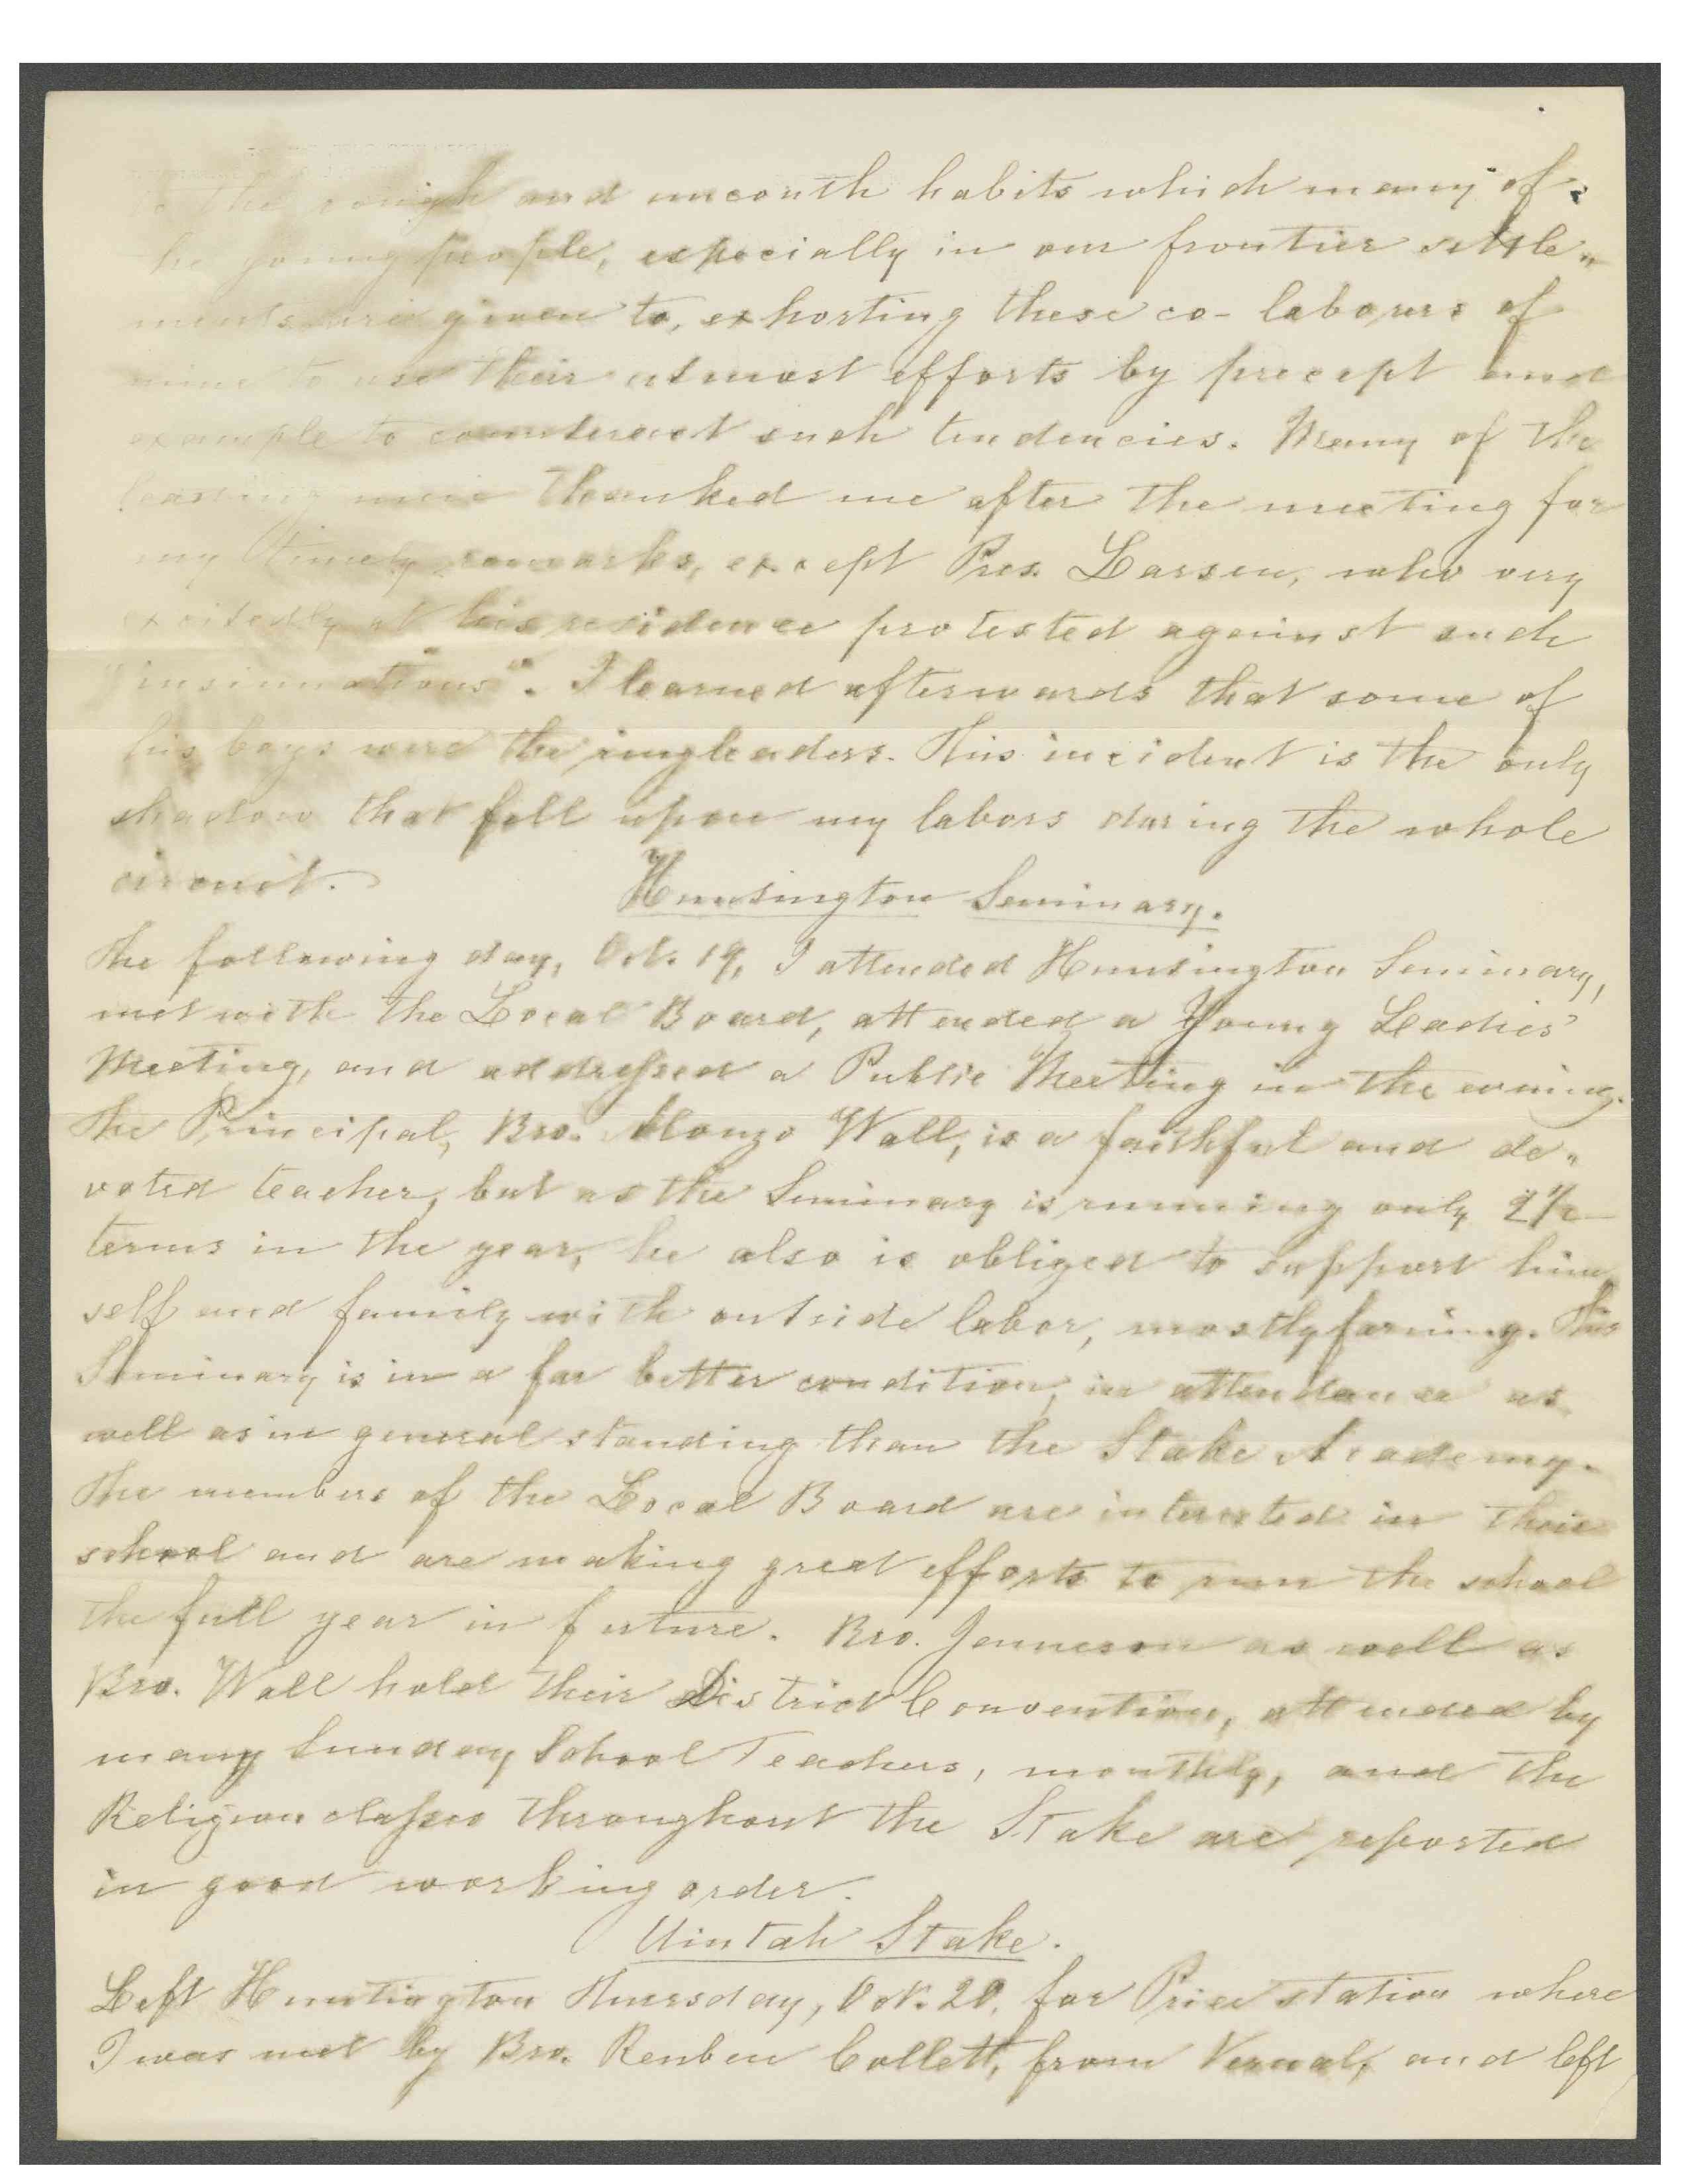 to the rough and uncouth habits which many of
the young people, especially in our frontier settle„
ments are given to, exhorting these co-laborers of
mine to use their utmost efforts by precept and
example to counteract such tendencies. Many of the
leading men thanked me after the meeting for
my timely remarks, except Pres. Larsen, who very
excitedly at his residence protested against such
"insinuations". I learned afterwards that some of
his boys were the ringleaders. This incident is the only
shadow that fell upon my labors during the whole
circuit.
Huntington Seminary.
The following day, Oct. 19, I attended Huntington Seminary,
met with the Local Board, attended a Young Ladies'
Meeting, and addressed a Public Meeting in the evening.
The Principal, Bro. Alonzo Wall, is a faithful and de„
voted teacher, but as the Seminary is running only 2½
terms in the year, he also is obliged to support him„
self and family with outside labor, mostly farming. This
Seminary is in a far better condition, in attendance as
well as in general standing than the Stake Academy.
The members of the Local Board are interested in their
school and are making great efforts to run the school
the full year in future. Bro. Jameson as well as
Bro. Wall hold their District Convention, attended by
many Sunday School Teachers, monthly, and the
Religion classes throughout the Stake are reported
in good working order.
Uintah Stake.
Left Huntington Thursday, Oct. 20, for Price station where
I was met by Bro. Reuben Collett, from Vernal, and left